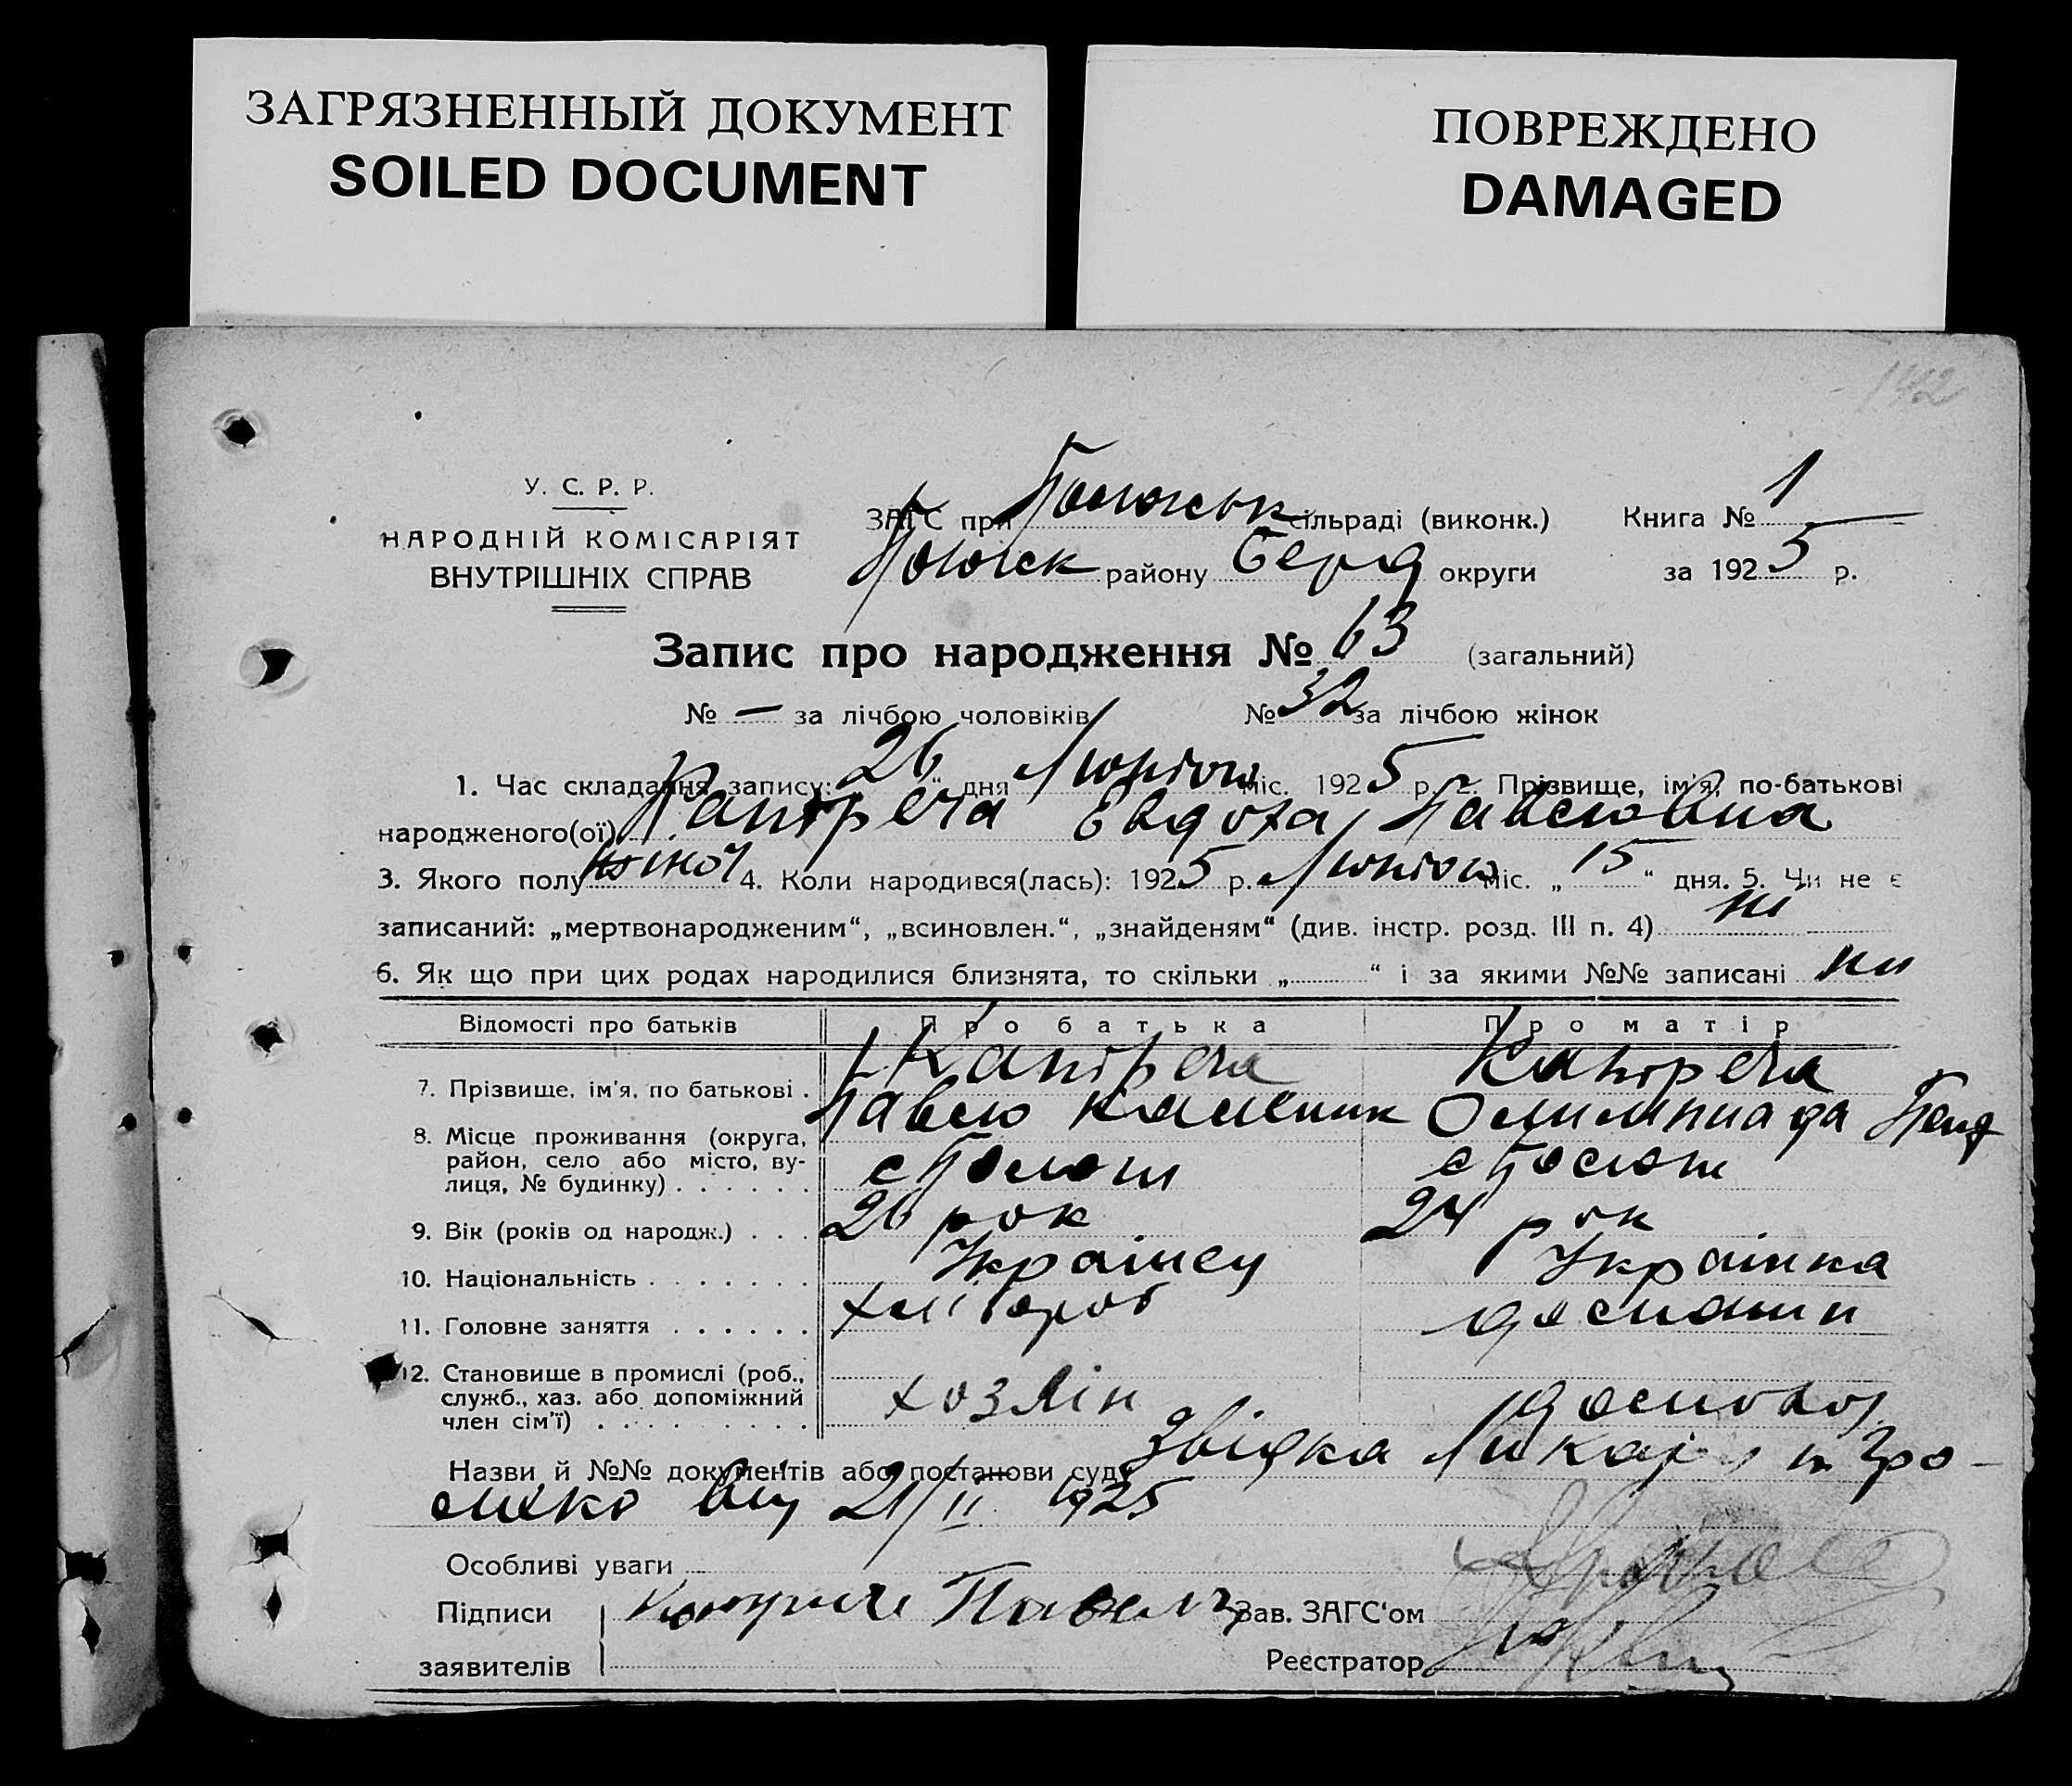 ЗАГРЯЗНЕННЫЙ ДОКУМЕНТ
SOILED DOCUMENT
ПОВРЕЖДЕНО
DAMAGED
142
У. С. Р. Р.
НАРОДНІЙ КОМІСАРІЯТ
ВНУТРІШНІХ СПРАВ
ЗАГС при сільраді (виконк.) Книга № 1
району Берд округи за 1925 р.
Запис про народження № 63 (загальний)
№ — за лічбою чоловіків № 32 за лічбою жінок
1. Час складання запису: 26 " дня Лютого міс. 1925 р. 2. Прізвище, ім'я, по-батькові
народженого(ої) Евдоха Павловна
3. Якого полу жіноч 4. Коли народився(лась): 1925 р. Лютого міс. „ 15 “ дня. 5. Чи не є
записаний: „мертвонародженим“, „всиновлен.“, „знайденям“ (див. інстр. розд. III п. 4) ні
6. Як що при цих родах народилися близнята, то скільки „ “ і за якими №№ записані ни
Відомості про батьків Про батька Про матір
7. Прізвище, ім'я, по батькові .
Павло Олимпиада
8. Місце проживання (округа,
район, село або місто, ву-
лиця, № будинку) . . . . . . с Пологи с Пологи
9. Вік (років од народж.) . . . 26 рок 24 рок
10. Національність . . . . . . . Українец Українка
11. Головне заняття . . . . . . хлібороб
12. Становище в промислі (роб.,
служб., хаз. або допоміжний
член сім'ї) . . . . . . . . . хозяін
Назви й №№ документів або постанови суду Звідка Ликаря
від 21/II 1925
Особливі уваги
Підписи Павел Зав. ЗАГС'ом
заявителів Реєстратор